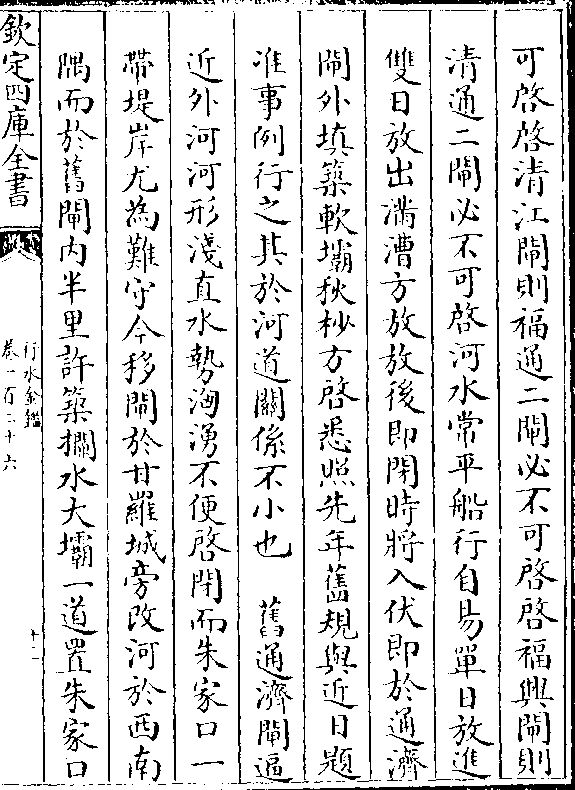 可啓啓清江閘則福通二閘必不可啓啓福興閘則
清通二閘必不可啓河水常平船行自易單日放進
雙日放出滿漕方放放後即閉時將入伏即於通濟
閘外填築軟壩秋杪方啓悉照先年舊規與近日題
准事例行之其於河道關係不小也　舊通濟閘逼
近外河河形淺直水勢洶湧不便啓閉而朱家口一
帶堤岸尤為難守今移閘於甘羅城旁改河於西南
隅而於舊閘内半里許築攔水大壩一道置朱家口
欽定四庫全書
行水金鑑
卷一百二十六
十二